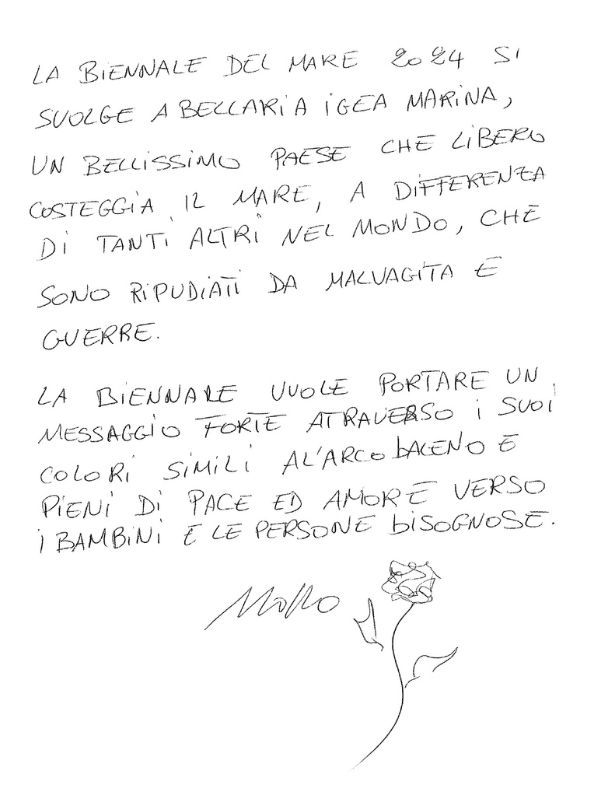 LA BIENNALE DEL MARE 2024 SI
SVOLGE A BELLARIA IGEA MARINA,
UN BELLISSIMO PAESE CHE LIBERO
COSTEGGIA IL MARE, A DIFFERENZA
DI TANTI ALTRI NEL MONDO, CHE
SONO RIPUDIATI DA MALVAGITA E
GUERRE.
LA BIENNALE VUOLE PORTARE UN
MESSAGGIO FORTE ATRAVERSO I SUOI
COLORI SIMILI AL'ARCOBALENO E
PIENI DI PACE ED AMORE VERSO
I BAMBINI E LE PERSONE BISOGNOSE.